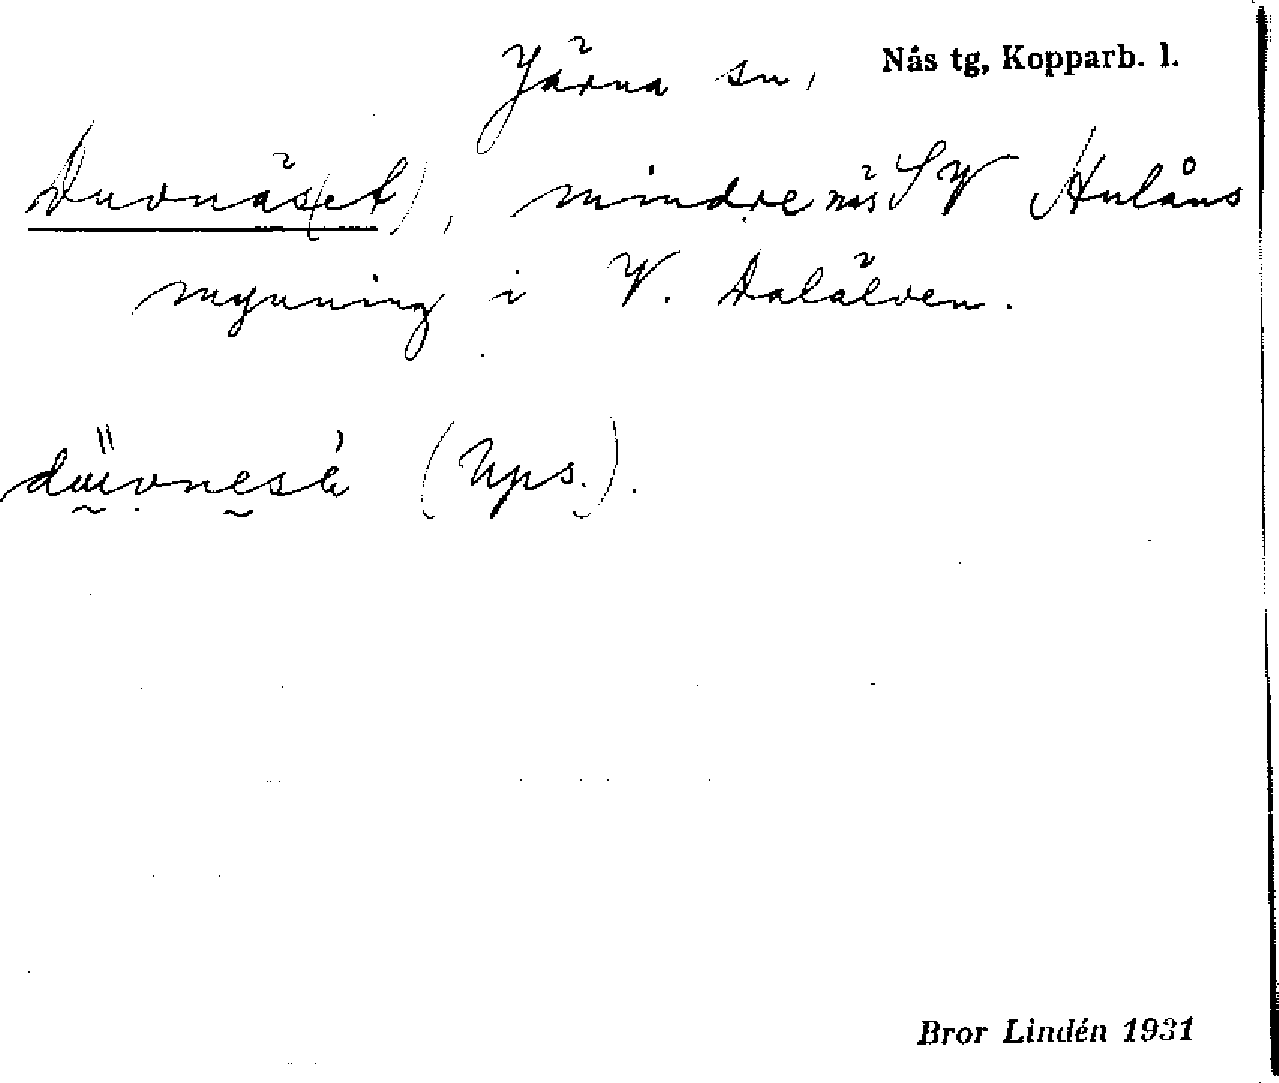 Järna sn, Nås tg, Kopparb. l.
Duvnäs(et), mindre näs SV Hulåns
mynning i V. Dalälven.
(Ups.).
Bror Lindén 1931